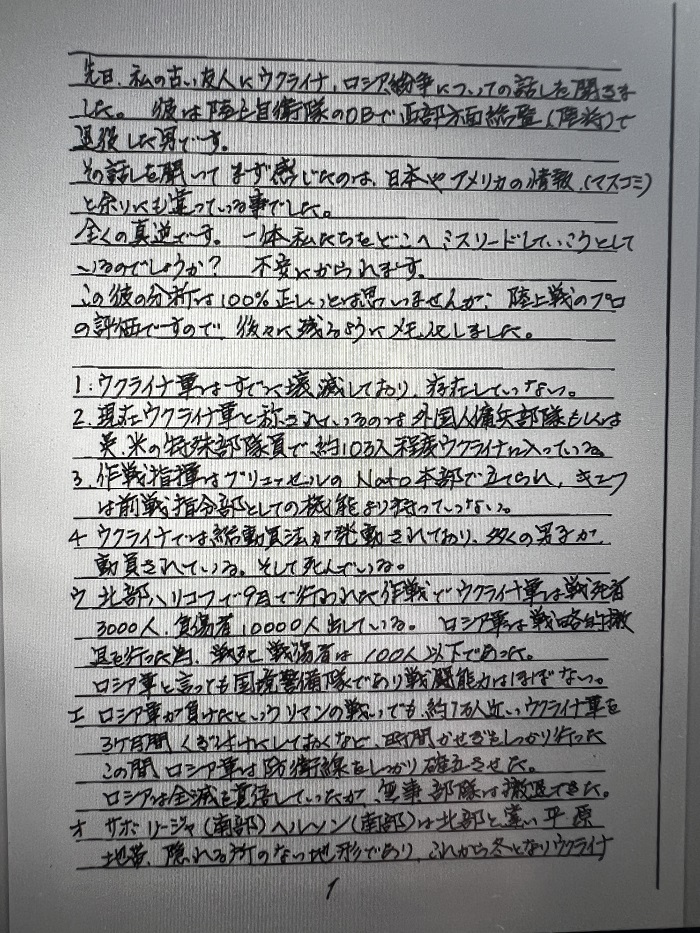 先日、私の古い友人にウクライナ、ロシア紛争についての話しを聞きま
した。 彼は陸上自衛隊のOBで西部方面総監(陸将)で
退役した男です。
その話しを聞いて まず感じたのは、日本や アメリカの情報、(マスコミ)
と余りにも違っている事でした。
全くの真逆です。 一体私たちをどこへ ミスリードしていこうとして
いるのでしょうか? 不安にかられます。
この彼の分析は100%正しいとは思いませんが、陸上戦のプロ
の評価ですので、後々に残るようにメモ化しました。
1. ウクライナ軍はすでに壊滅しており、存在していない。
2. 現在ウクライナ軍と称されているのは外国人傭兵部隊もしくは
英、米の特殊部隊員で、約10万人程度ウクライナに入っている。
3. 作戦指揮はブリュッセルの Nato本部で立てられ、キエフ
は前戦指令部としての機能より持っていない。
4 ウクライナでは総動員法が発動されており、多くの男子が
動員されている。そして死んでいる。
ウ 北部ハリコフで9月で行われた作戦でウクライナ軍は戦死者
3000人、負傷者10000人出している。 ロシア軍は戦略的撤
退を行った為、戦死 戦傷者は 100人以下であった。
ロシア軍と言っても国境警備隊であり戦闘能力はほぼない。
エ ロシア軍が負けたというリマンの戦いでも、約1万人近いウクライナ軍を
3ケ月間 くぎ付けにしておくなど、時間かせぎもしっかり行った
この間 ロシア軍は防衛線をしっかり確立させた。
ロシアは全滅も覚悟していたが、無事 部隊は撤退できた。
オ サポリージャ(南部)ヘルソン(南部)は北部と違い平原
地帯、隠れる所のない地形であり、これから冬となりウクライナ
1